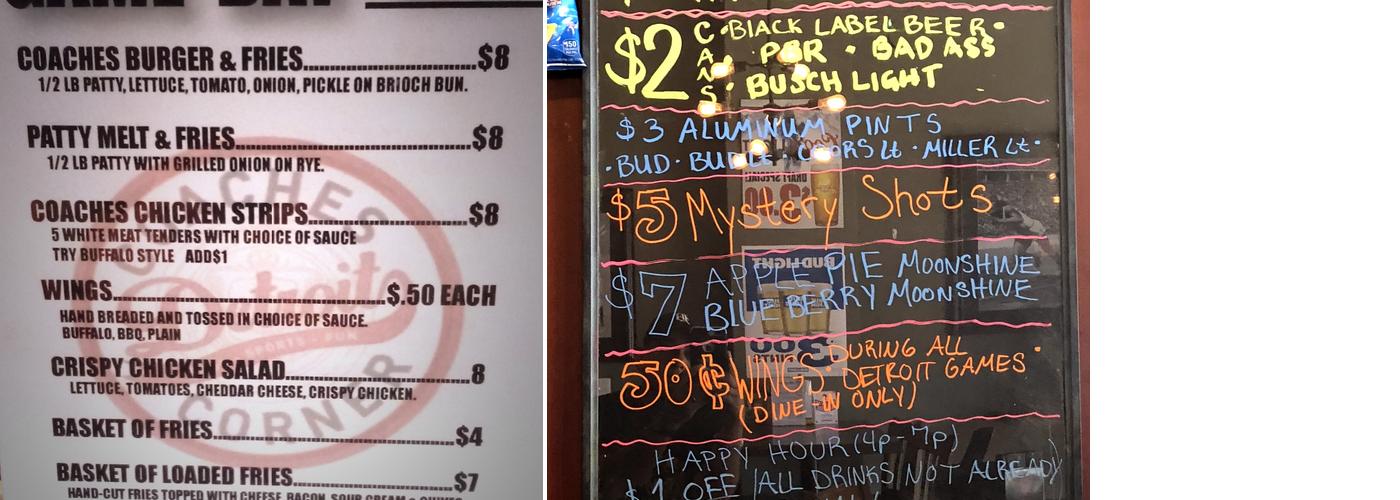 GAME DAY
COACHES BURGER & FRIES..............................$8
1/2 LB PATTY, LETTUCE, TOMATO, ONION, PICKLE ON BRIOCH BUN.
PATTY MELT & FRIES..............................$8
1/2 LB PATTY WITH GRILLED ONION ON RYE.
COACHES CHICKEN STRIPS..............................$8
5 WHITE MEAT TENDERS WITH CHOICE OF SAUCE
TRY BUFFALO STYLE ADD$1
WINGS..............................$.50 EACH
HAND BREADED AND TOSSED IN CHOICE OF SAUCE.
BUFFALO, BBQ, PLAIN
CRISPY CHICKEN SALAD..............................8
LETTUCE, TOMATOES, CHEDDAR CHEESE, CRISPY CHICKEN.
BASKET OF FRIES..............................$4
BASKET OF LOADED FRIES..............................$7
HAND-CUT FRIES TOPPED WITH CHEESE, BACON, SOUR CREAM
COACHES
Detroit
SPORTS · PUB
CORNER
$2 CANS · BLACK LABEL BEER ·
PBR · BAD ASS
· BUSCH LIGHT
$3 ALUMINUM PINTS
· BUD · BUD Lt · COORS Lt · MILLER Lt ·
$5 Mystery Shots
$7 APPLE PIE MOONSHINE
BLUEBERRY MOONSHINE
50¢ WINGS · DURING ALL
DETROIT GAMES ·
(DINE-IN ONLY)
HAPPY HOUR (4p-7p)
$1 OFF (ALL DRINKS NOT ALREADY